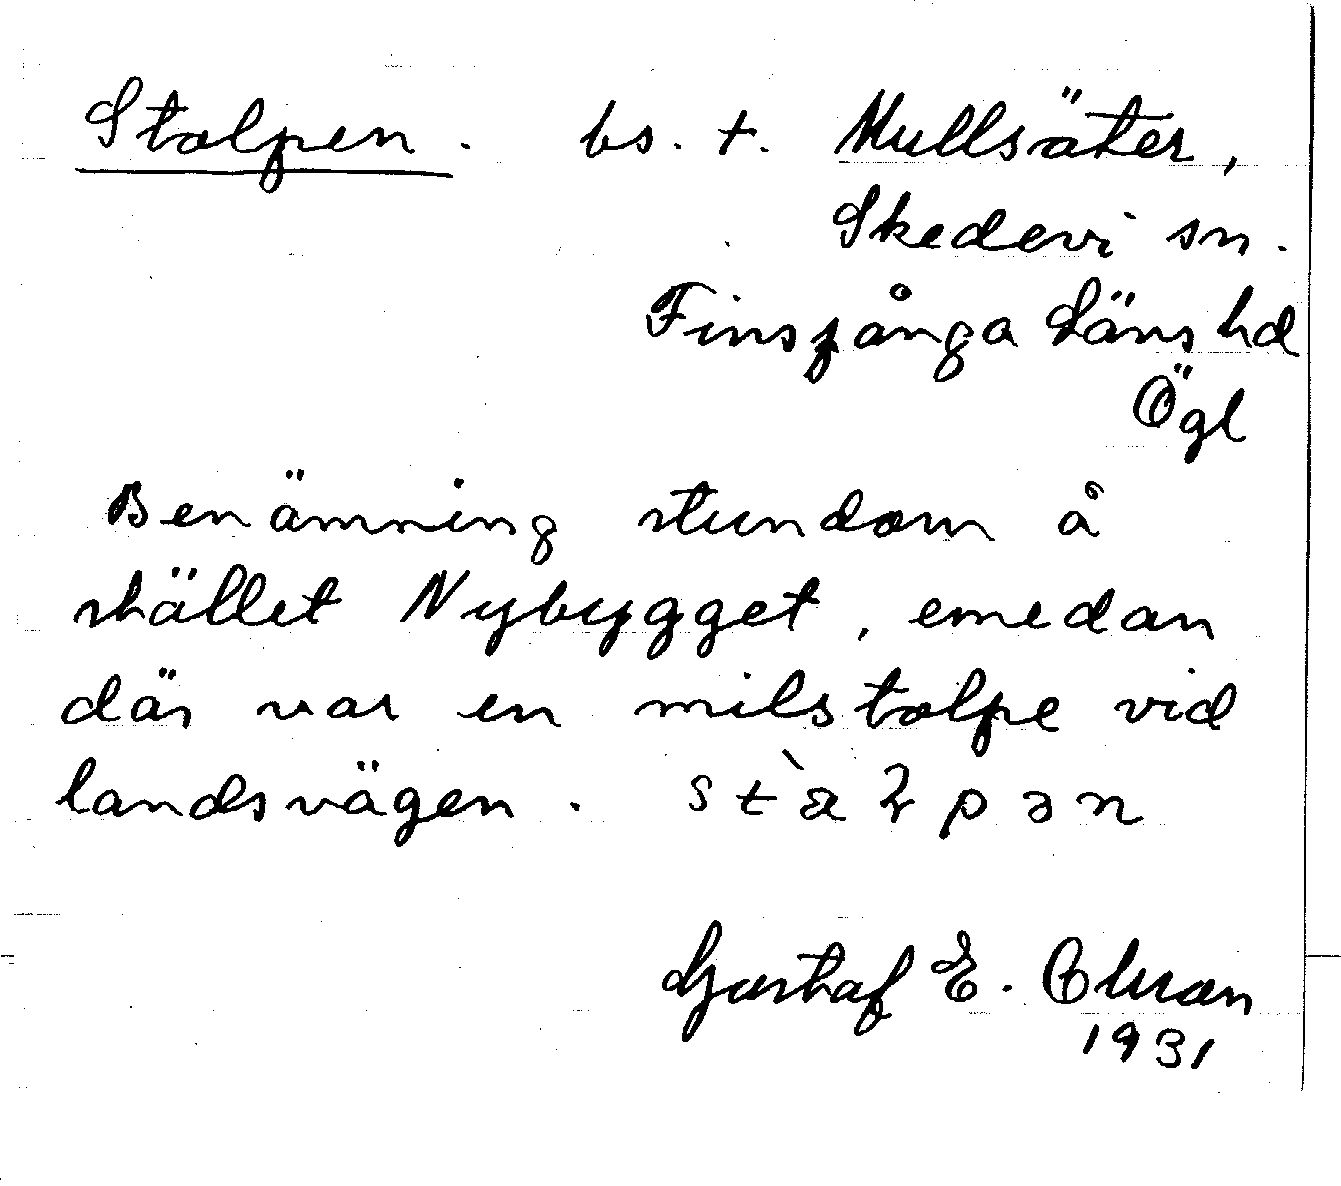 Stolpen. bs. t. Mullsäter,
Skedevi sn.
Finspånga Läns hd
Ögl
Benämning stundom å
stället Nybygget, emedan
där var en milstolpe vid
landsvägen.
Gustaf E. Olson
1931